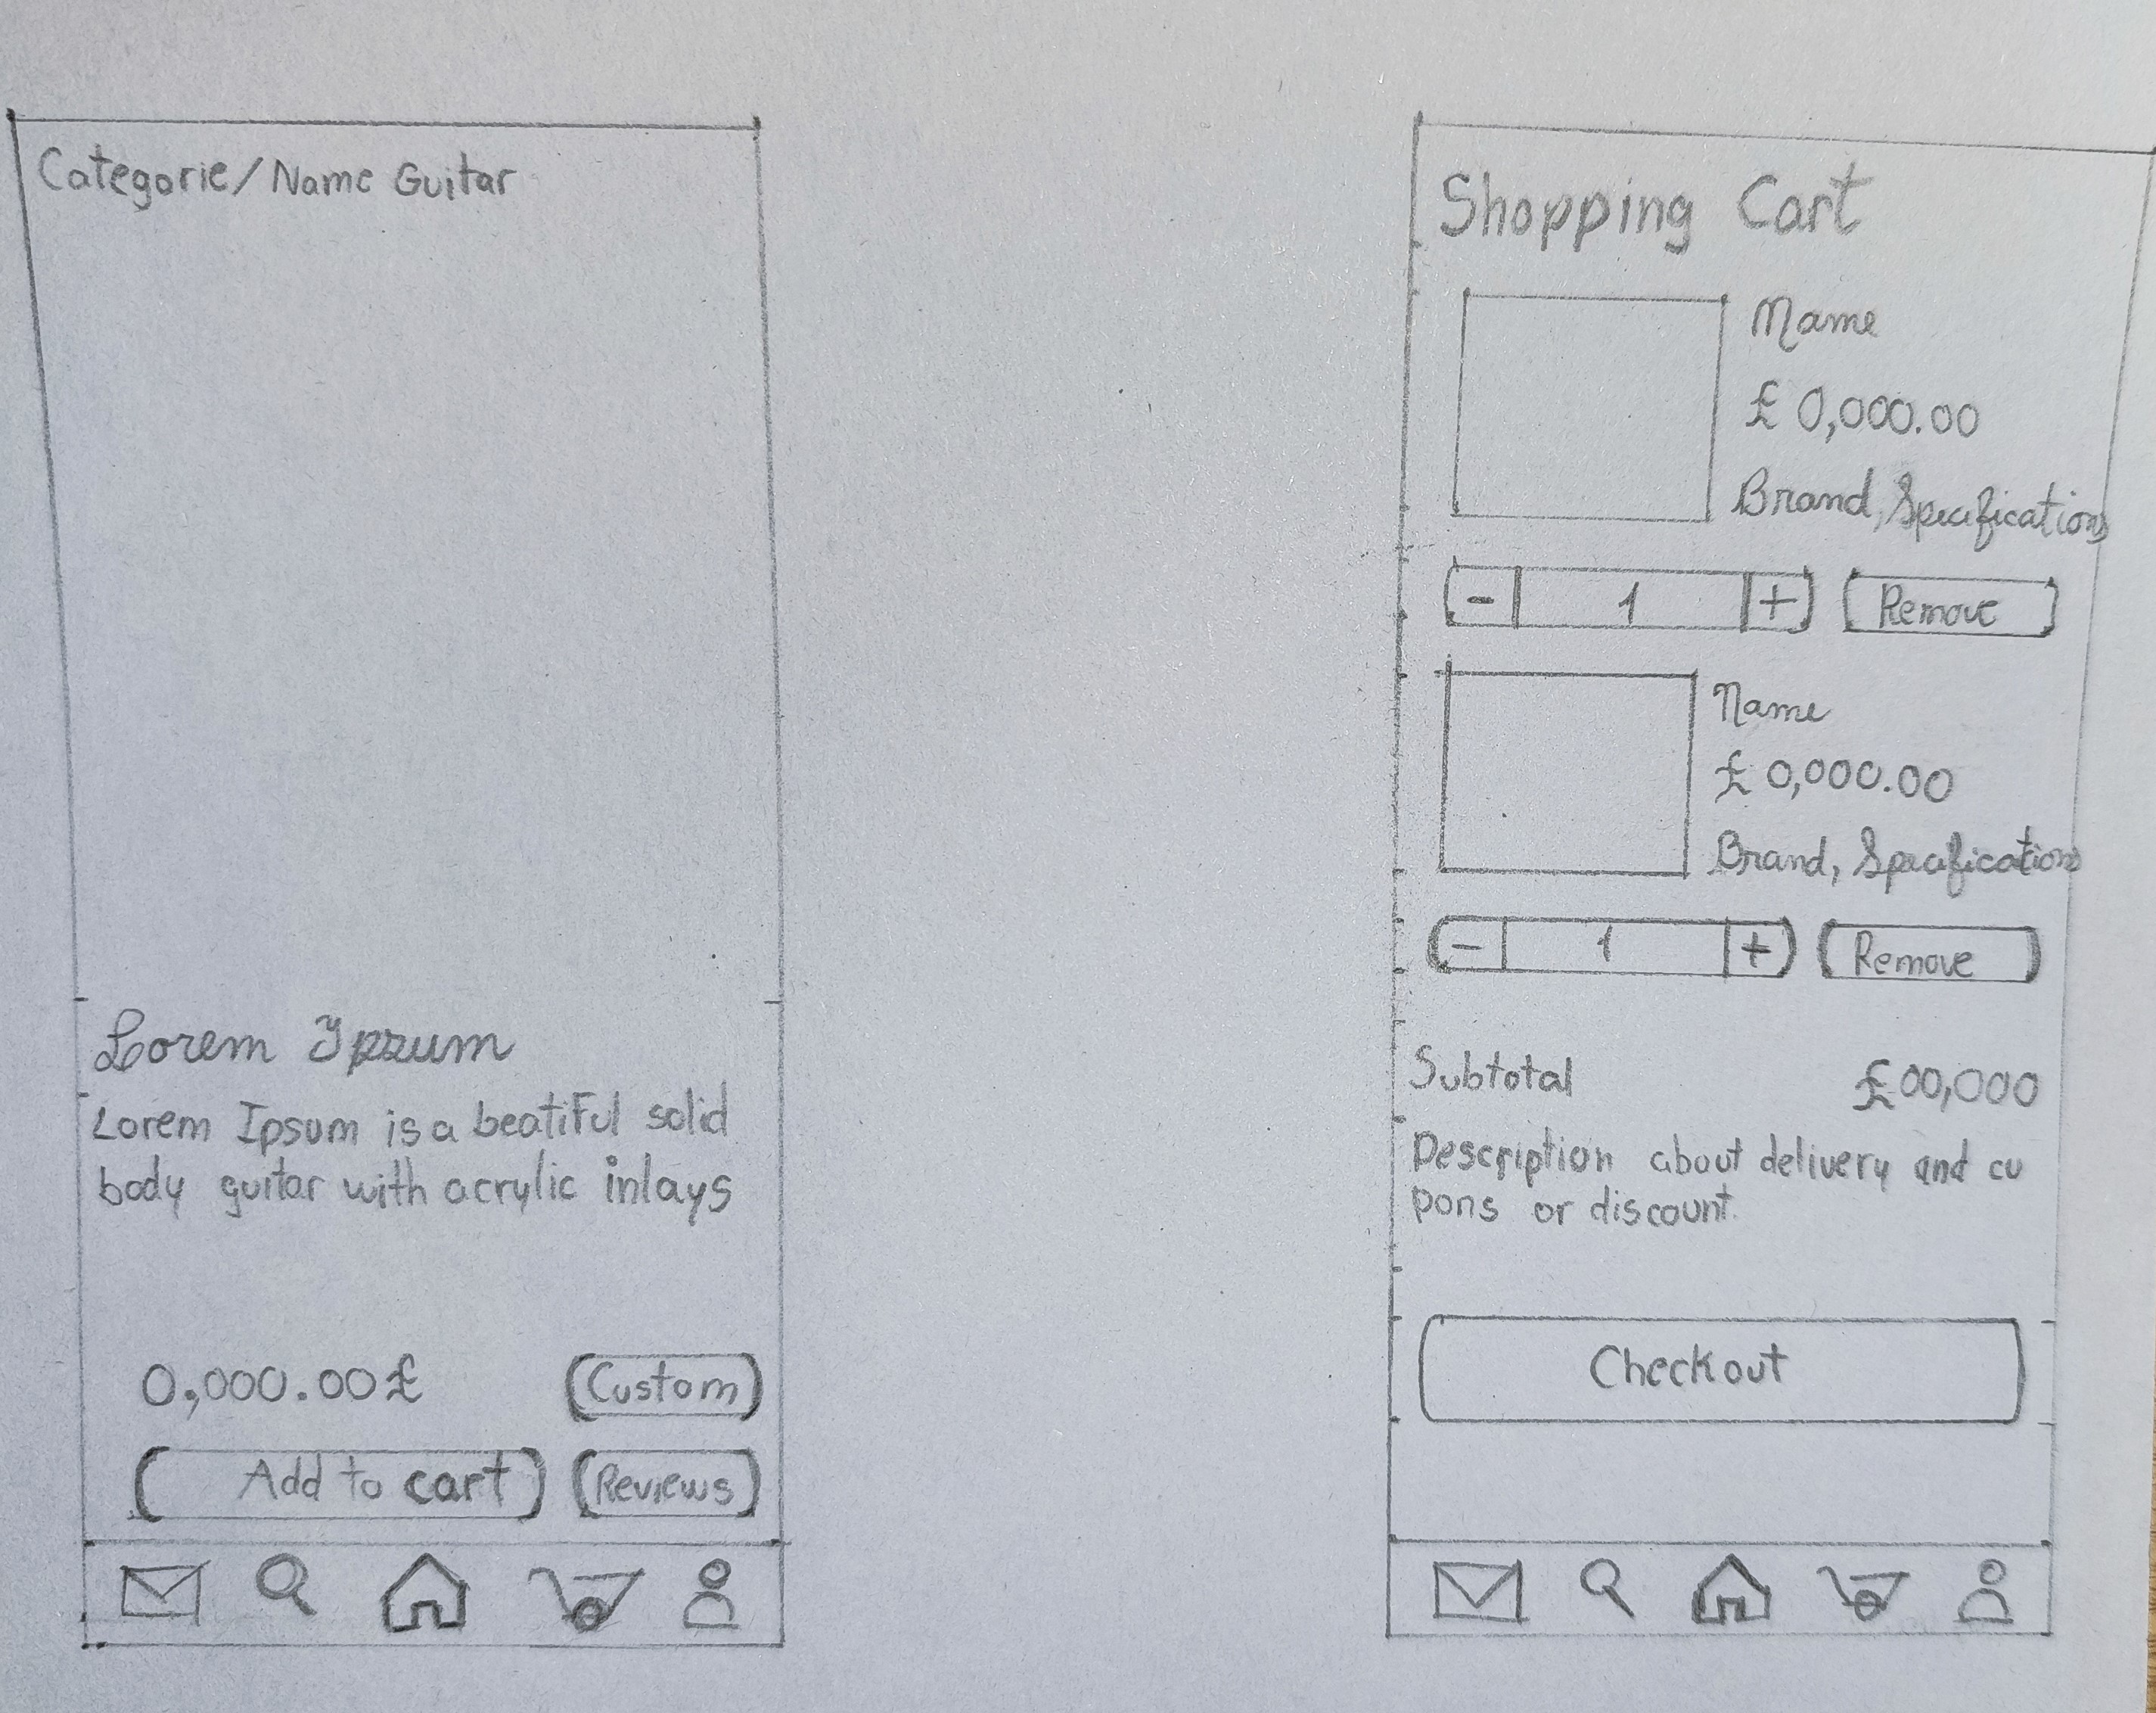 Categorie/Name Guitar
Lorem Ipsum
Lorem Ipsum is a beatiful solid
body guitar with acrylic inlays
0,000.00£
Custom
Add to cart
Reviews
Shopping Cart
Name
£ 0,000.00
Brand, Specifications
- 1 +
Remove
Name
£ 0,000.00
Brand, Specifications
- 1 +
Remove
Subtotal £00,000
Description about delivery and cu
pons or discount.
Checkout